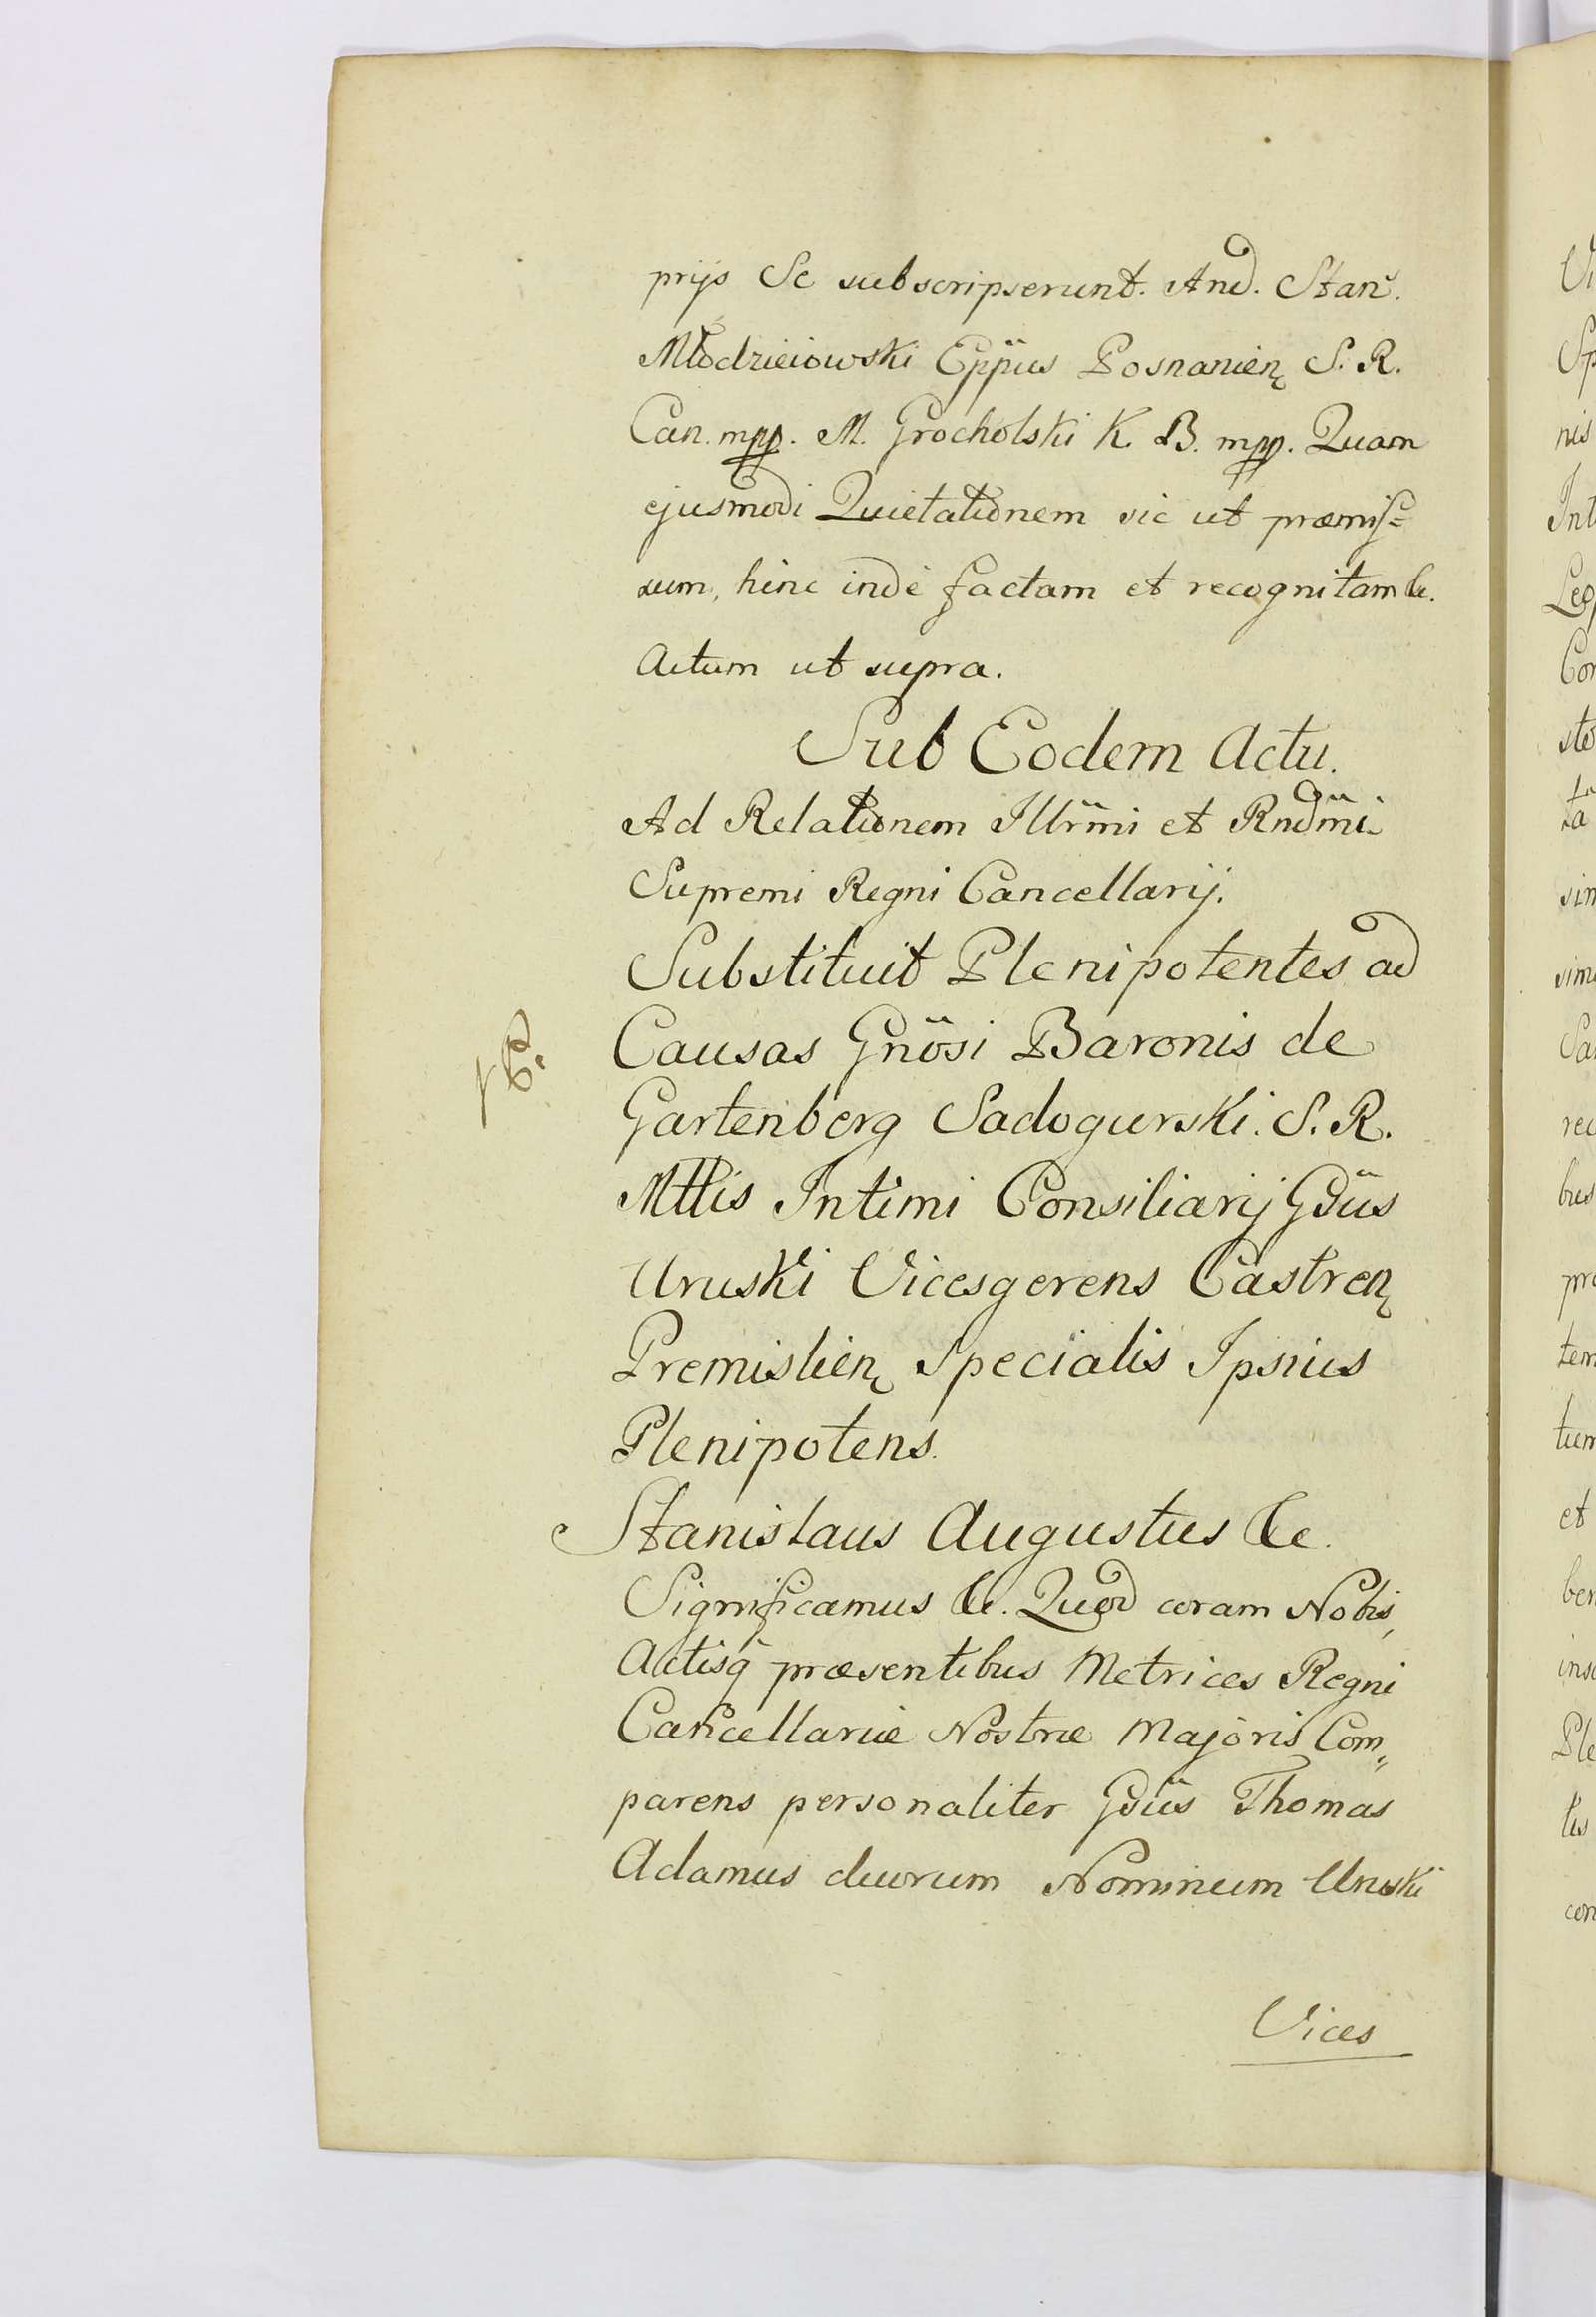 prijs Se subscripserunt. And. Stan.
Młodzieiowski Eppus Posnanien S. R.
Can. mpp. M. Grocholski K. B. mpp. Quam
ejusmodi Quietationem sic ut præmis=
sum, hinc indè factam et recognitam &c.
Actum ut supra.
Sub Eodem Actu.
Ad Relationem Illrmi et Rndmi
Supremi Regni Cancellarij.
Substituit Plenipotentes ad
Causas Gnosi Baronis de
Gartenberg Sadogurski. S. R.
Mttis Intimi Consiliarij Gsus
Uruski Vicesgerens Castren
Premislien Specialis Ipsius
Plenipotens.
Stanislaus Augustus &c.
Significamus &c. Quod coram Nobis,
Actisq præsentibus Metrices Regni
Cancellariæ Nostræ Majoris Com„
parens personaliter Gsus Thomas
Adamus duorum Nominum Uruski
Vices